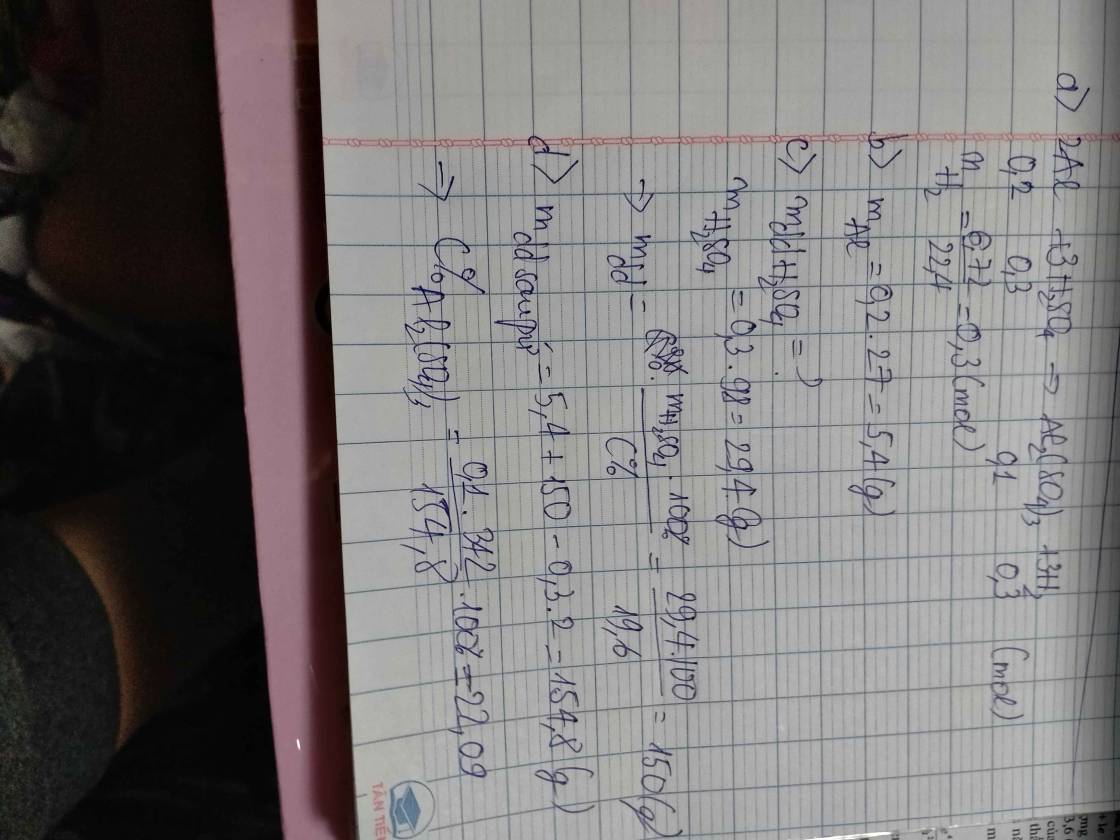 a) 2Al + 3H₂SO₄ → Al₂(SO₄)₃ + 3H₂
0,2 0,3 0,1 0,3 (mol)
n H₂ = 6,72 / 22,4 = 0,3 (mol)
b) m Al = 0,2 . 27 = 5,4 (g)
c) mdd H₂SO₄ = ?
m H₂SO₄ = 0,3 . 98 = 29,4 (g)
→ mdd = m H₂SO₄ . 100% / C% = 29,4.100 / 19,6 = 150 (g)
d) m dd sau pứ = 5,4 + 150 - 0,3.2 = 154,8 (g)
⇒ C% Al₂(SO₄)₃ = 0,1 . 342 / 154,8 . 100% = 22,09
TÂN TIẾ